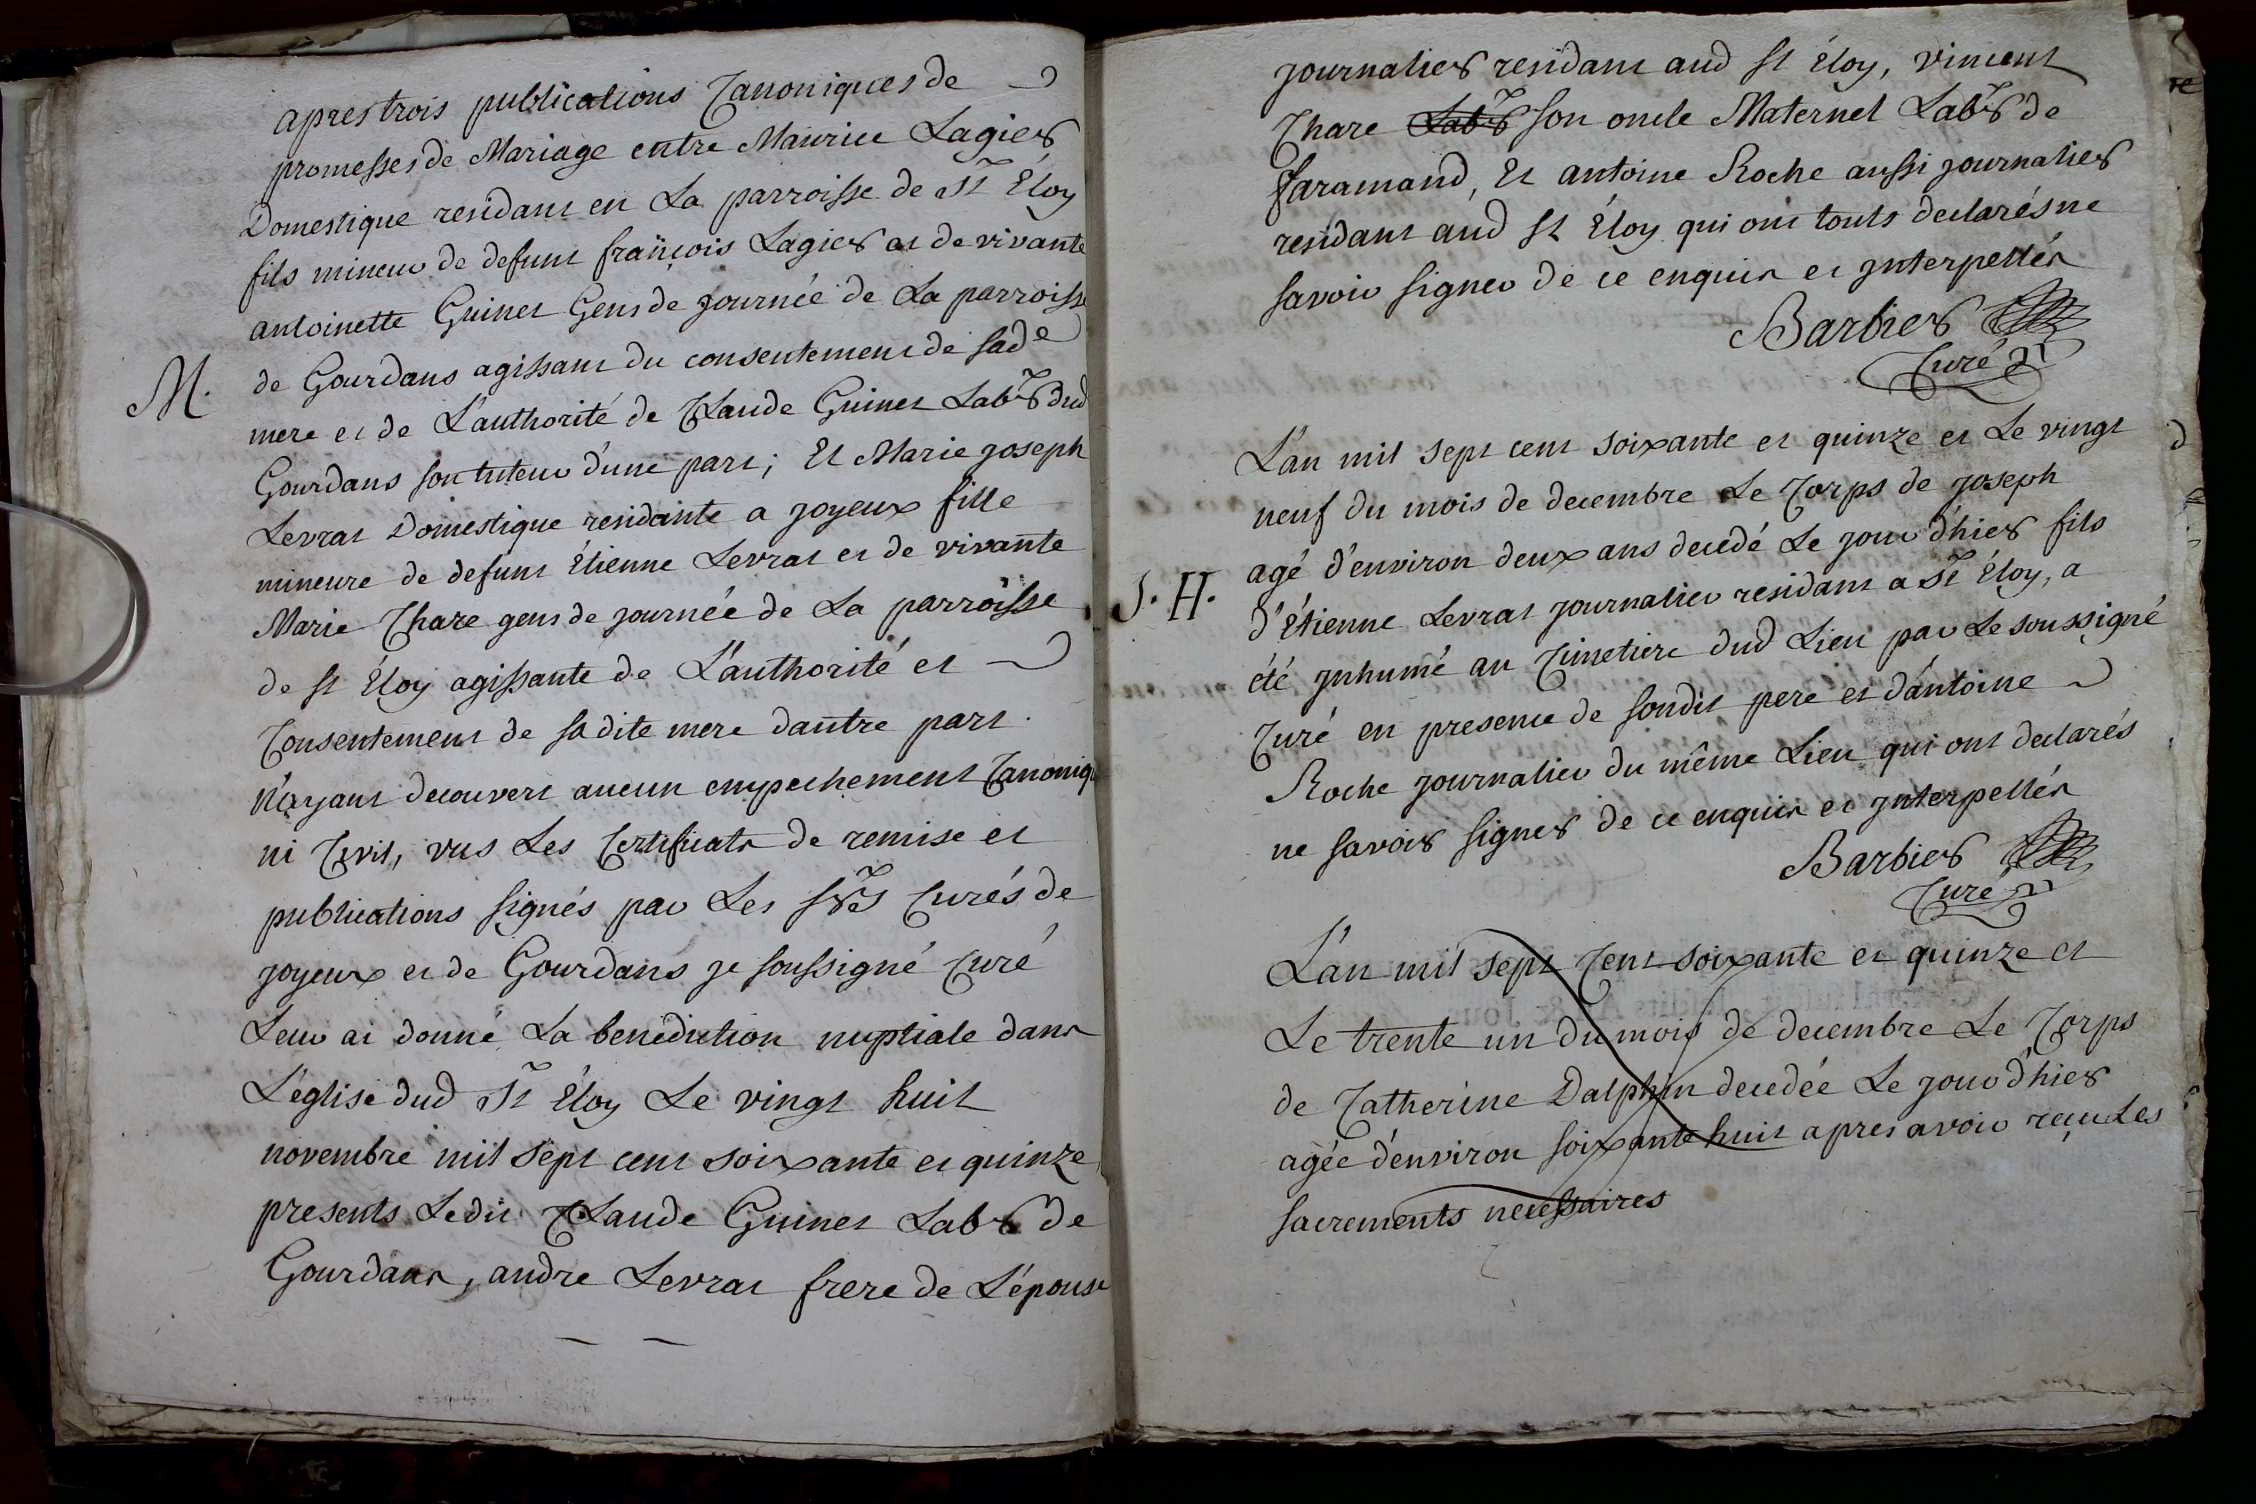 apres trois publications Canoniques de
promesses de Mariage entre Maurice Lagier
Domestique residant en La parroisse de St Éloy
fils mineur de defunt françois Lagier et de vivante
antoinette Guinet Gens de journée de La parroisse
M.
de Gourdans agissant du consentement de sade
mere et de L'authorité de Claude Guinet Labr dud
Gourdans son tuteur d'une part; Et Marie joseph
Levrat Domestique residante a joyeux fille
mineure de defunt Étienne Levrat et de vivante
Marie Chare gens de journée de La parroisse
de st Éloy agissante de L'authorité et
Consentement de sadite mere dautre part.
N'ayant decouvert aucun empechement Canoniq
ni Civil, vus Les Certificats de remise et
publications signés par Les srs Curés de
joyeux et de Gourdans je soussigné Curé
Leur ai donné La benediction nuptiale dans
L'eglise dud St Éloy Le vingt huit
novembre mil sept cent soixante et quinze
presents Ledit Claude Guinet Labr de
Gourdans, andre Levrat frere de L'épouse
journalier residant aud st Éloy, vincent
Chare Labr son oncle Maternel Labr de
faramand, Et antoine Roche aussi journalier
residant aud st Éloy qui ont touts declarés ne
savoir signer de ce enquis et jnterpellés
Barbier
Curé
L'an mil sept cent soixante et quinze et Le vingt
neuf du mois de decembre Le Corps de joseph
agé d'environ deux ans decedé Le jour d'hier fils
S. H.
d'Étienne Levrat journalier residant a St Éloy, a
été jnhumé au Cimetiere dud Lieu par Le soussigné
Curé en presence de sondit pere et d'antoine
Roche journalier du même Lieu qui ont declarés
ne savoir signer de ce enquis et jnterpellés
Barbier
Curé
L'an mil sept Cent soixante et quinze et
Le trente un du mois de decembre Le Corps
de Catherine Dalphin decedée Le jour d'hier
agée d'environ soixante huit apres avoir reçu Les
sacrements necessaires